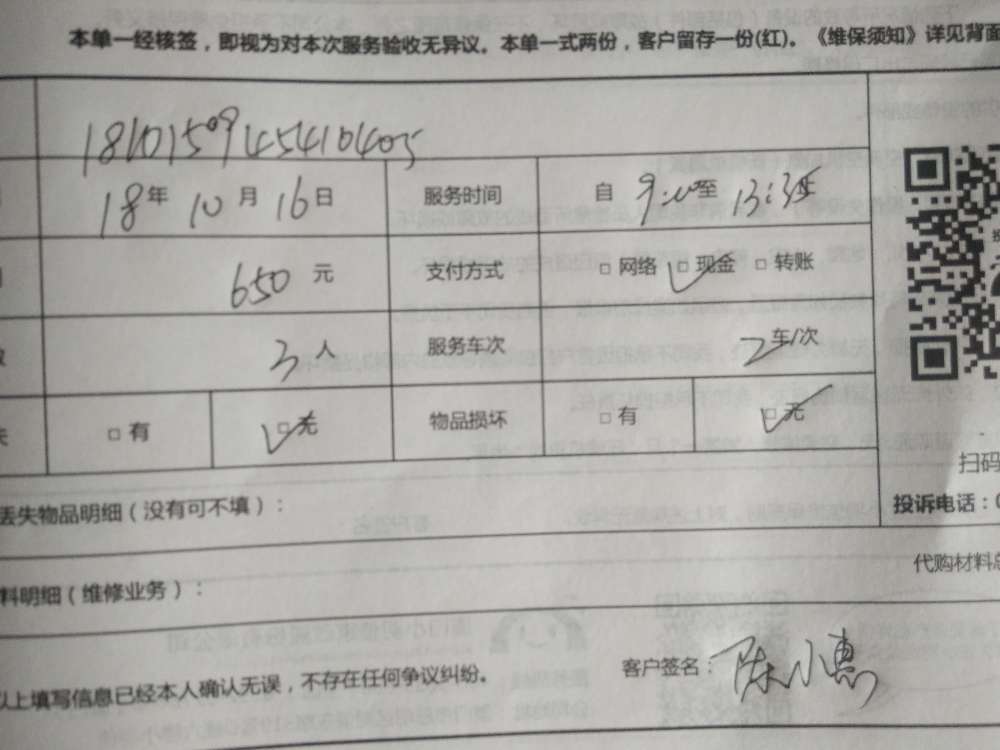 本单一经核签，即视为对本次服务验收无异议。本单一式两份，客户留存一份(红)。《维保须知》详见背面
1810150945410405
18年 10月 16日 服务时间 自 9:00至 13:35
650元 支付方式 □ 网络 □ 现金 □ 转账
3人 服务车次 2车/次
□ 有 □ 无 物品损坏 □ 有 □ 无
扫码
丢失物品明细（没有可不填）：
投诉电话：0
代购材料总
料明细（维修业务）：
以上填写信息已经本人确认无误，不存在任何争议纠纷。 客户签名：陈小惠